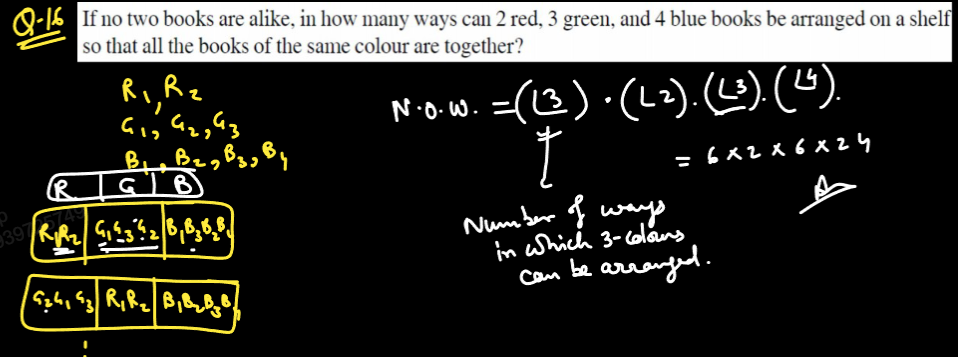 Q-16 If no two books are alike, in how many ways can 2 red, 3 green, and 4 blue books be arranged on a shelf
so that all the books of the same colour are together?
R₁, R₂
G₁, G₂, G₃
B₁, B₂, B₃, B₄
R | G | B
R₁R₂ | G₁G₃G₂ | B₁B₃B₂B₄
G₂G₁G₃ | R₁R₂ | B₁B₂B₃B₄
N.O.W. = (∟3) · (∟2). (∟3). (∟4).
= 6 x 2 x 6 x 24
Number of ways
in which 3-colours
can be arranged.